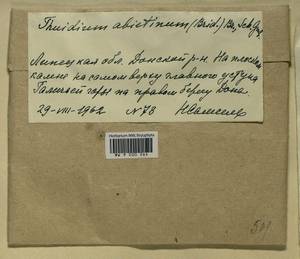 Thuidium abietinum (Brid.) Br., Sch., Gmb.
Липецкая обл. Донской р-н. На плоском
камне на самом верху главного уступа
Галичьей горы на правом берегу Дона.
29-VIII-1962 N78
Herbarium MW, Bryophyta